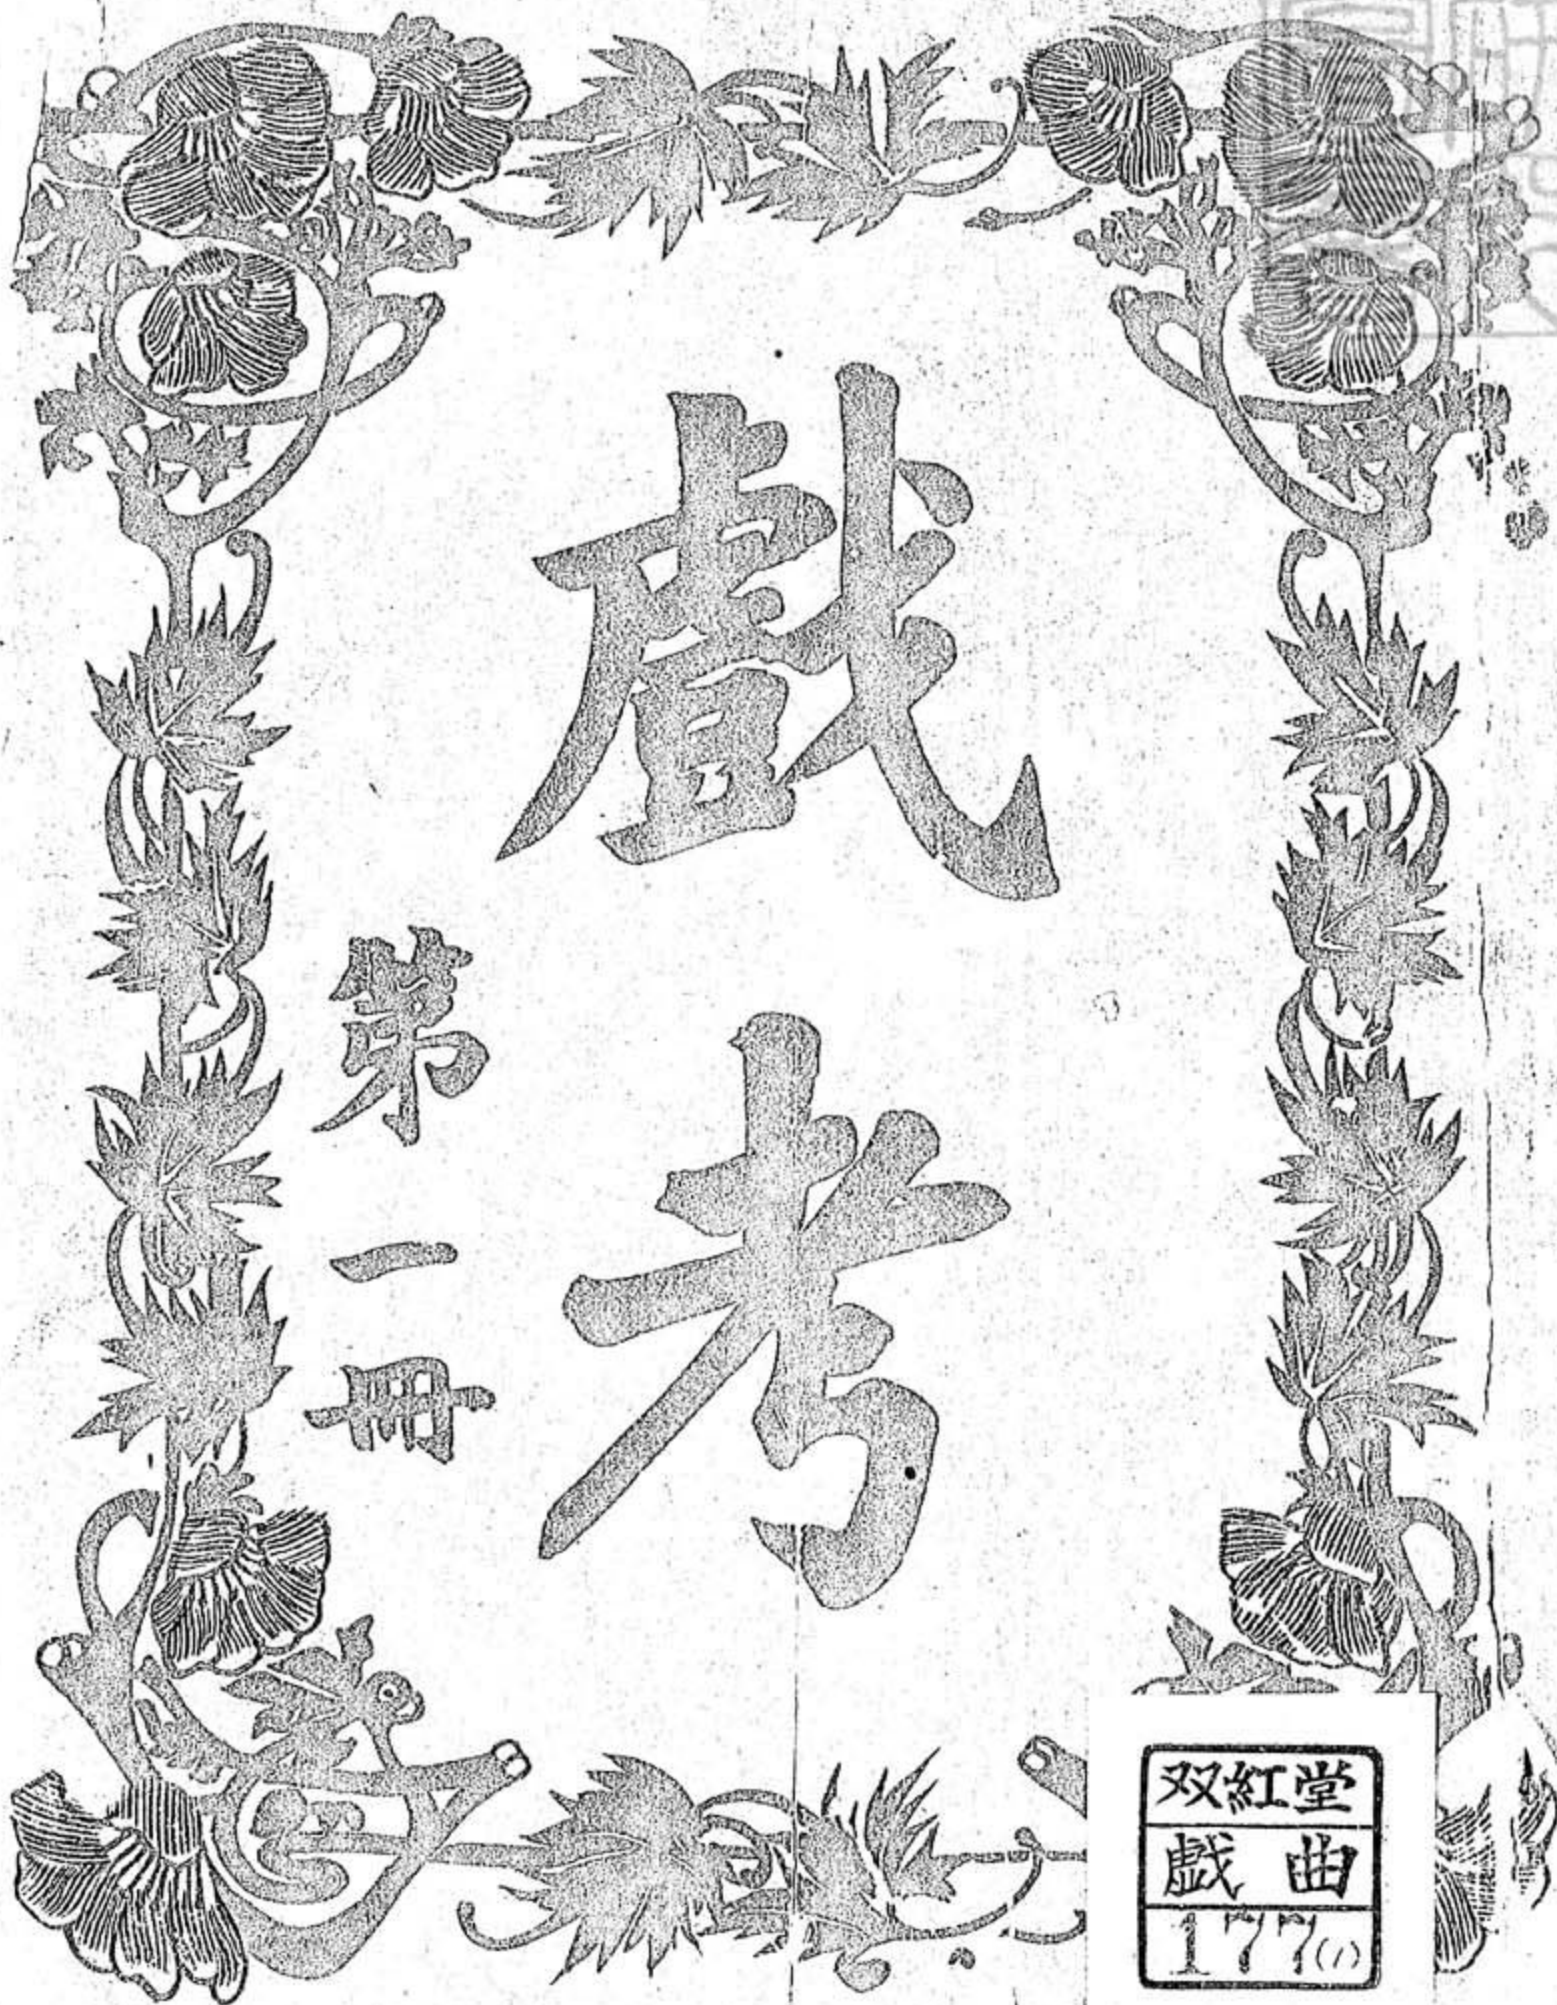 戲考
第一冊
双紅堂
戯曲
177(1)